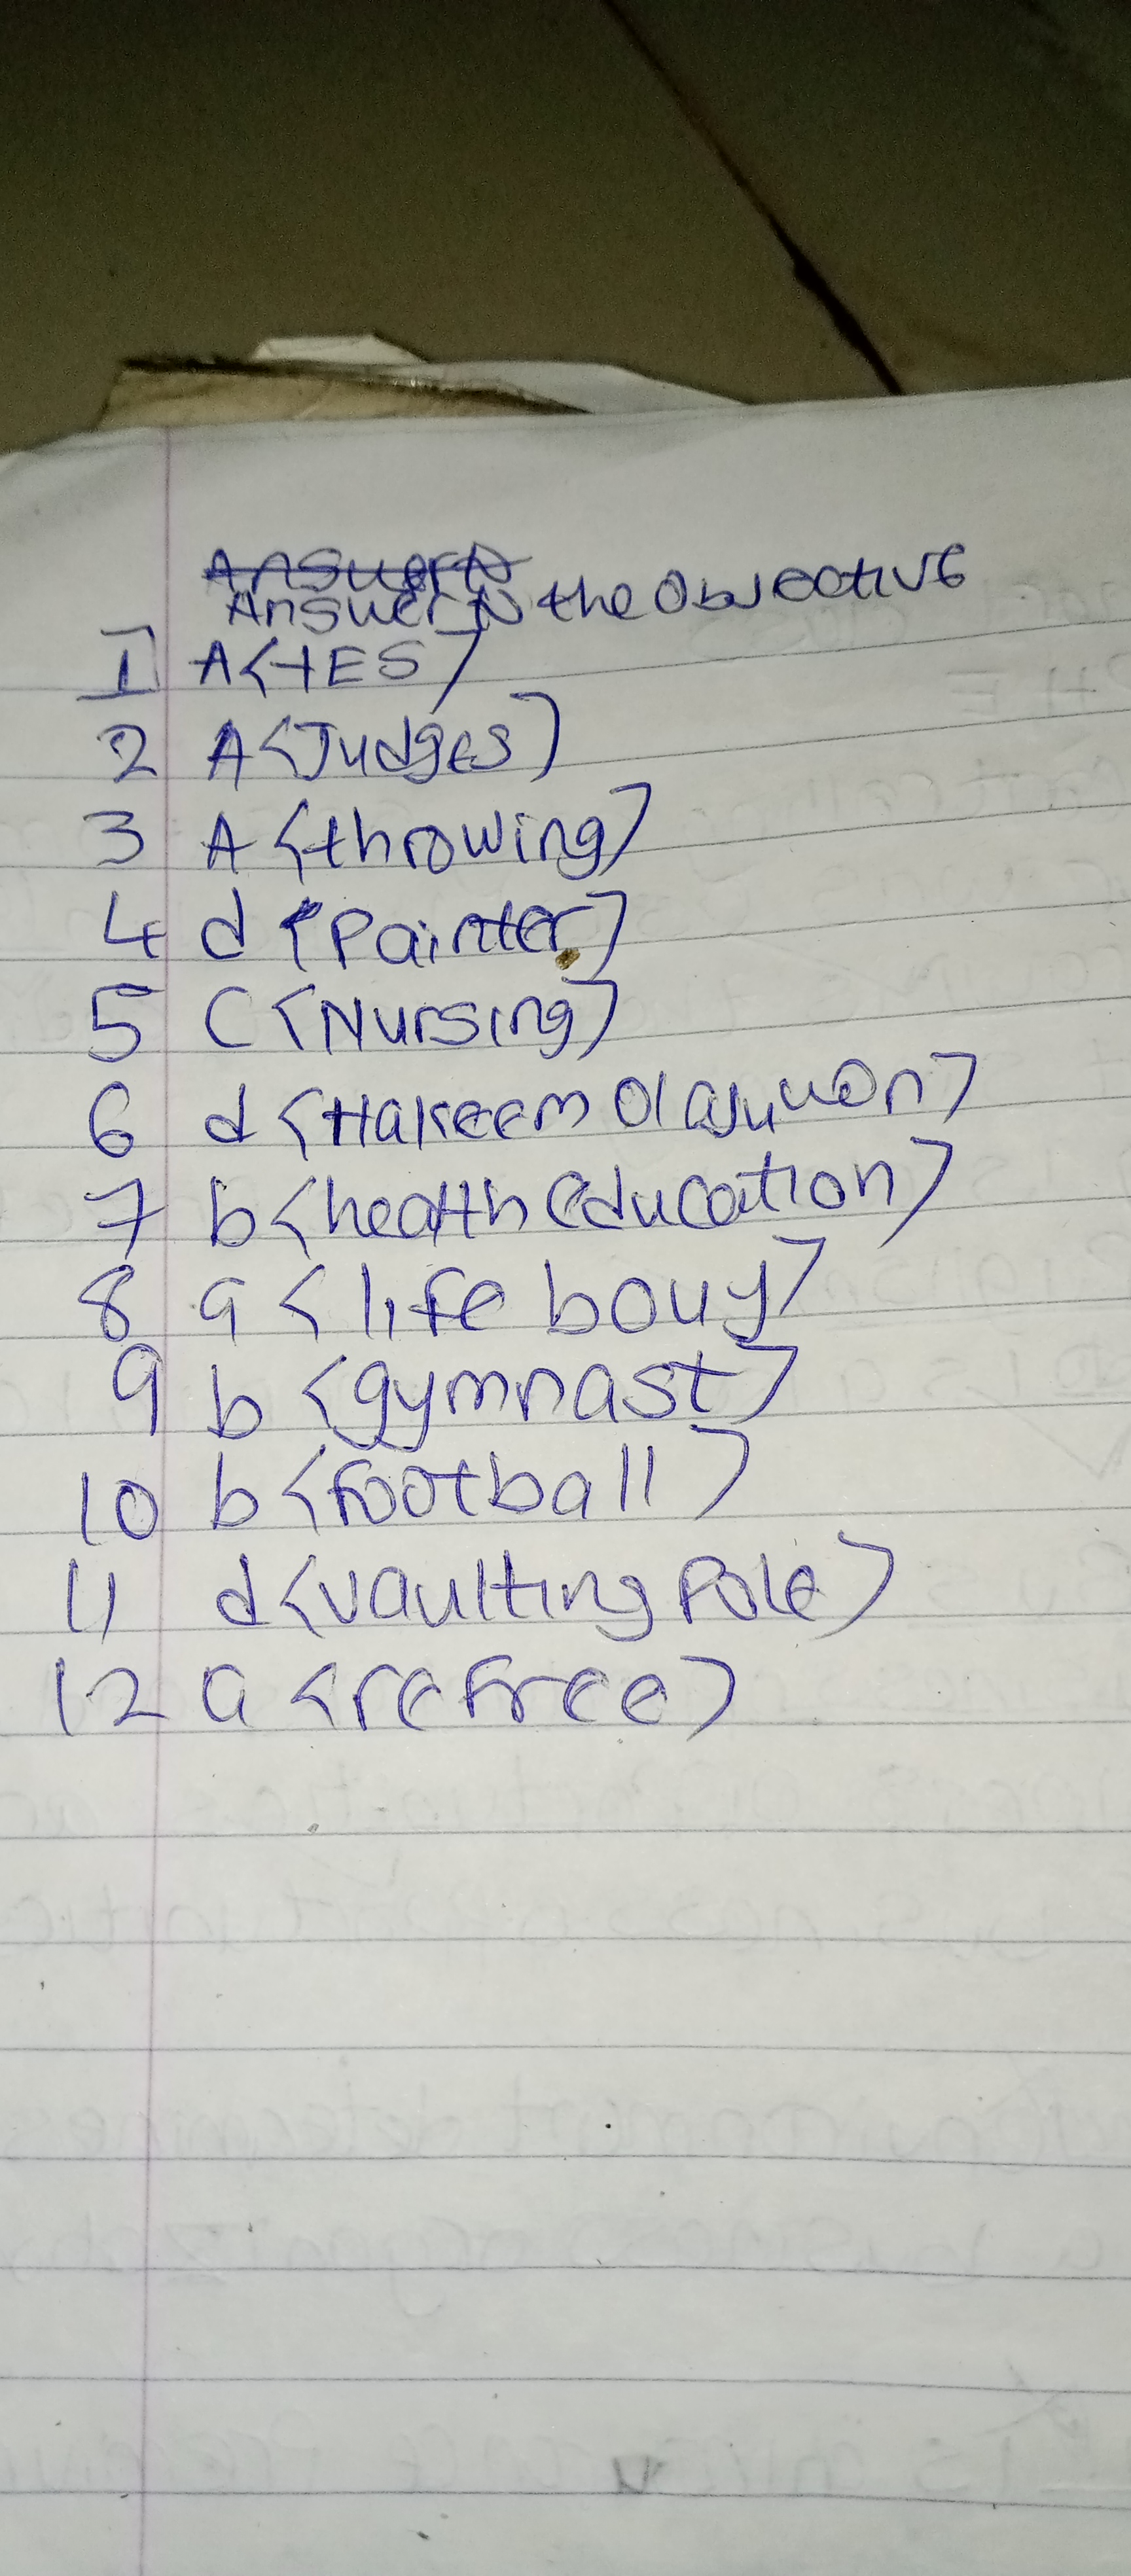 Answer to
Answer to the Objective
1 A (YES)
2 A (Judges)
3 A (throwing)
4 d (Painter)
5 C (Nursing)
6 d (Hakeem Olajuwon)
7 b (health education)
8 a (life bouy)
9 b (gymnast)
10 b (football)
11 d (vaulting Pole)
12 a (refree)